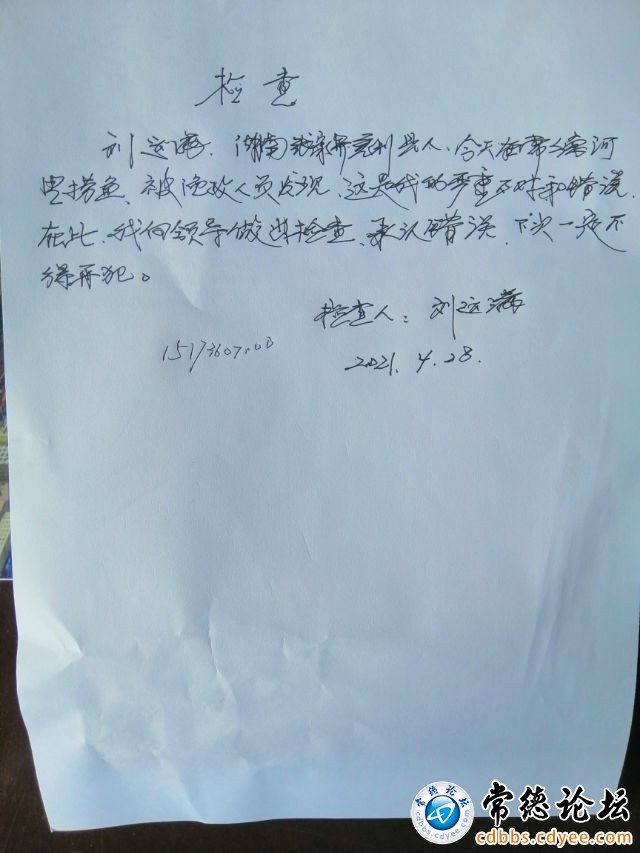 检查
刘运满、湖南张家界慈利县人、今天在常德河
里捞鱼、被渔政人员发现、这是我的严重不对和错误、
在此、我向领导做出检查、承认错误、下次一定不
得再犯。
检查人：刘运满
2021.4.28.
常德论坛
cdbbs.cdyee.com